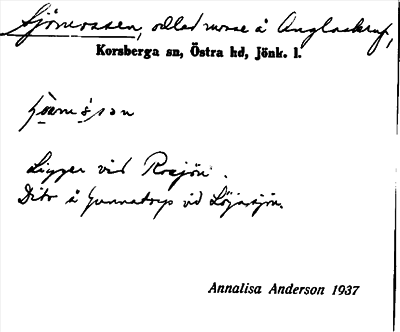 Sjömossen, odlad mosse å Anglaskrup,
Korsberga sn, Östra hd, Jönk. l.
Ligger vid Rosjön.
Dito å Gunnatorp vid Löjasjön.
Annalisa Anderson 1937